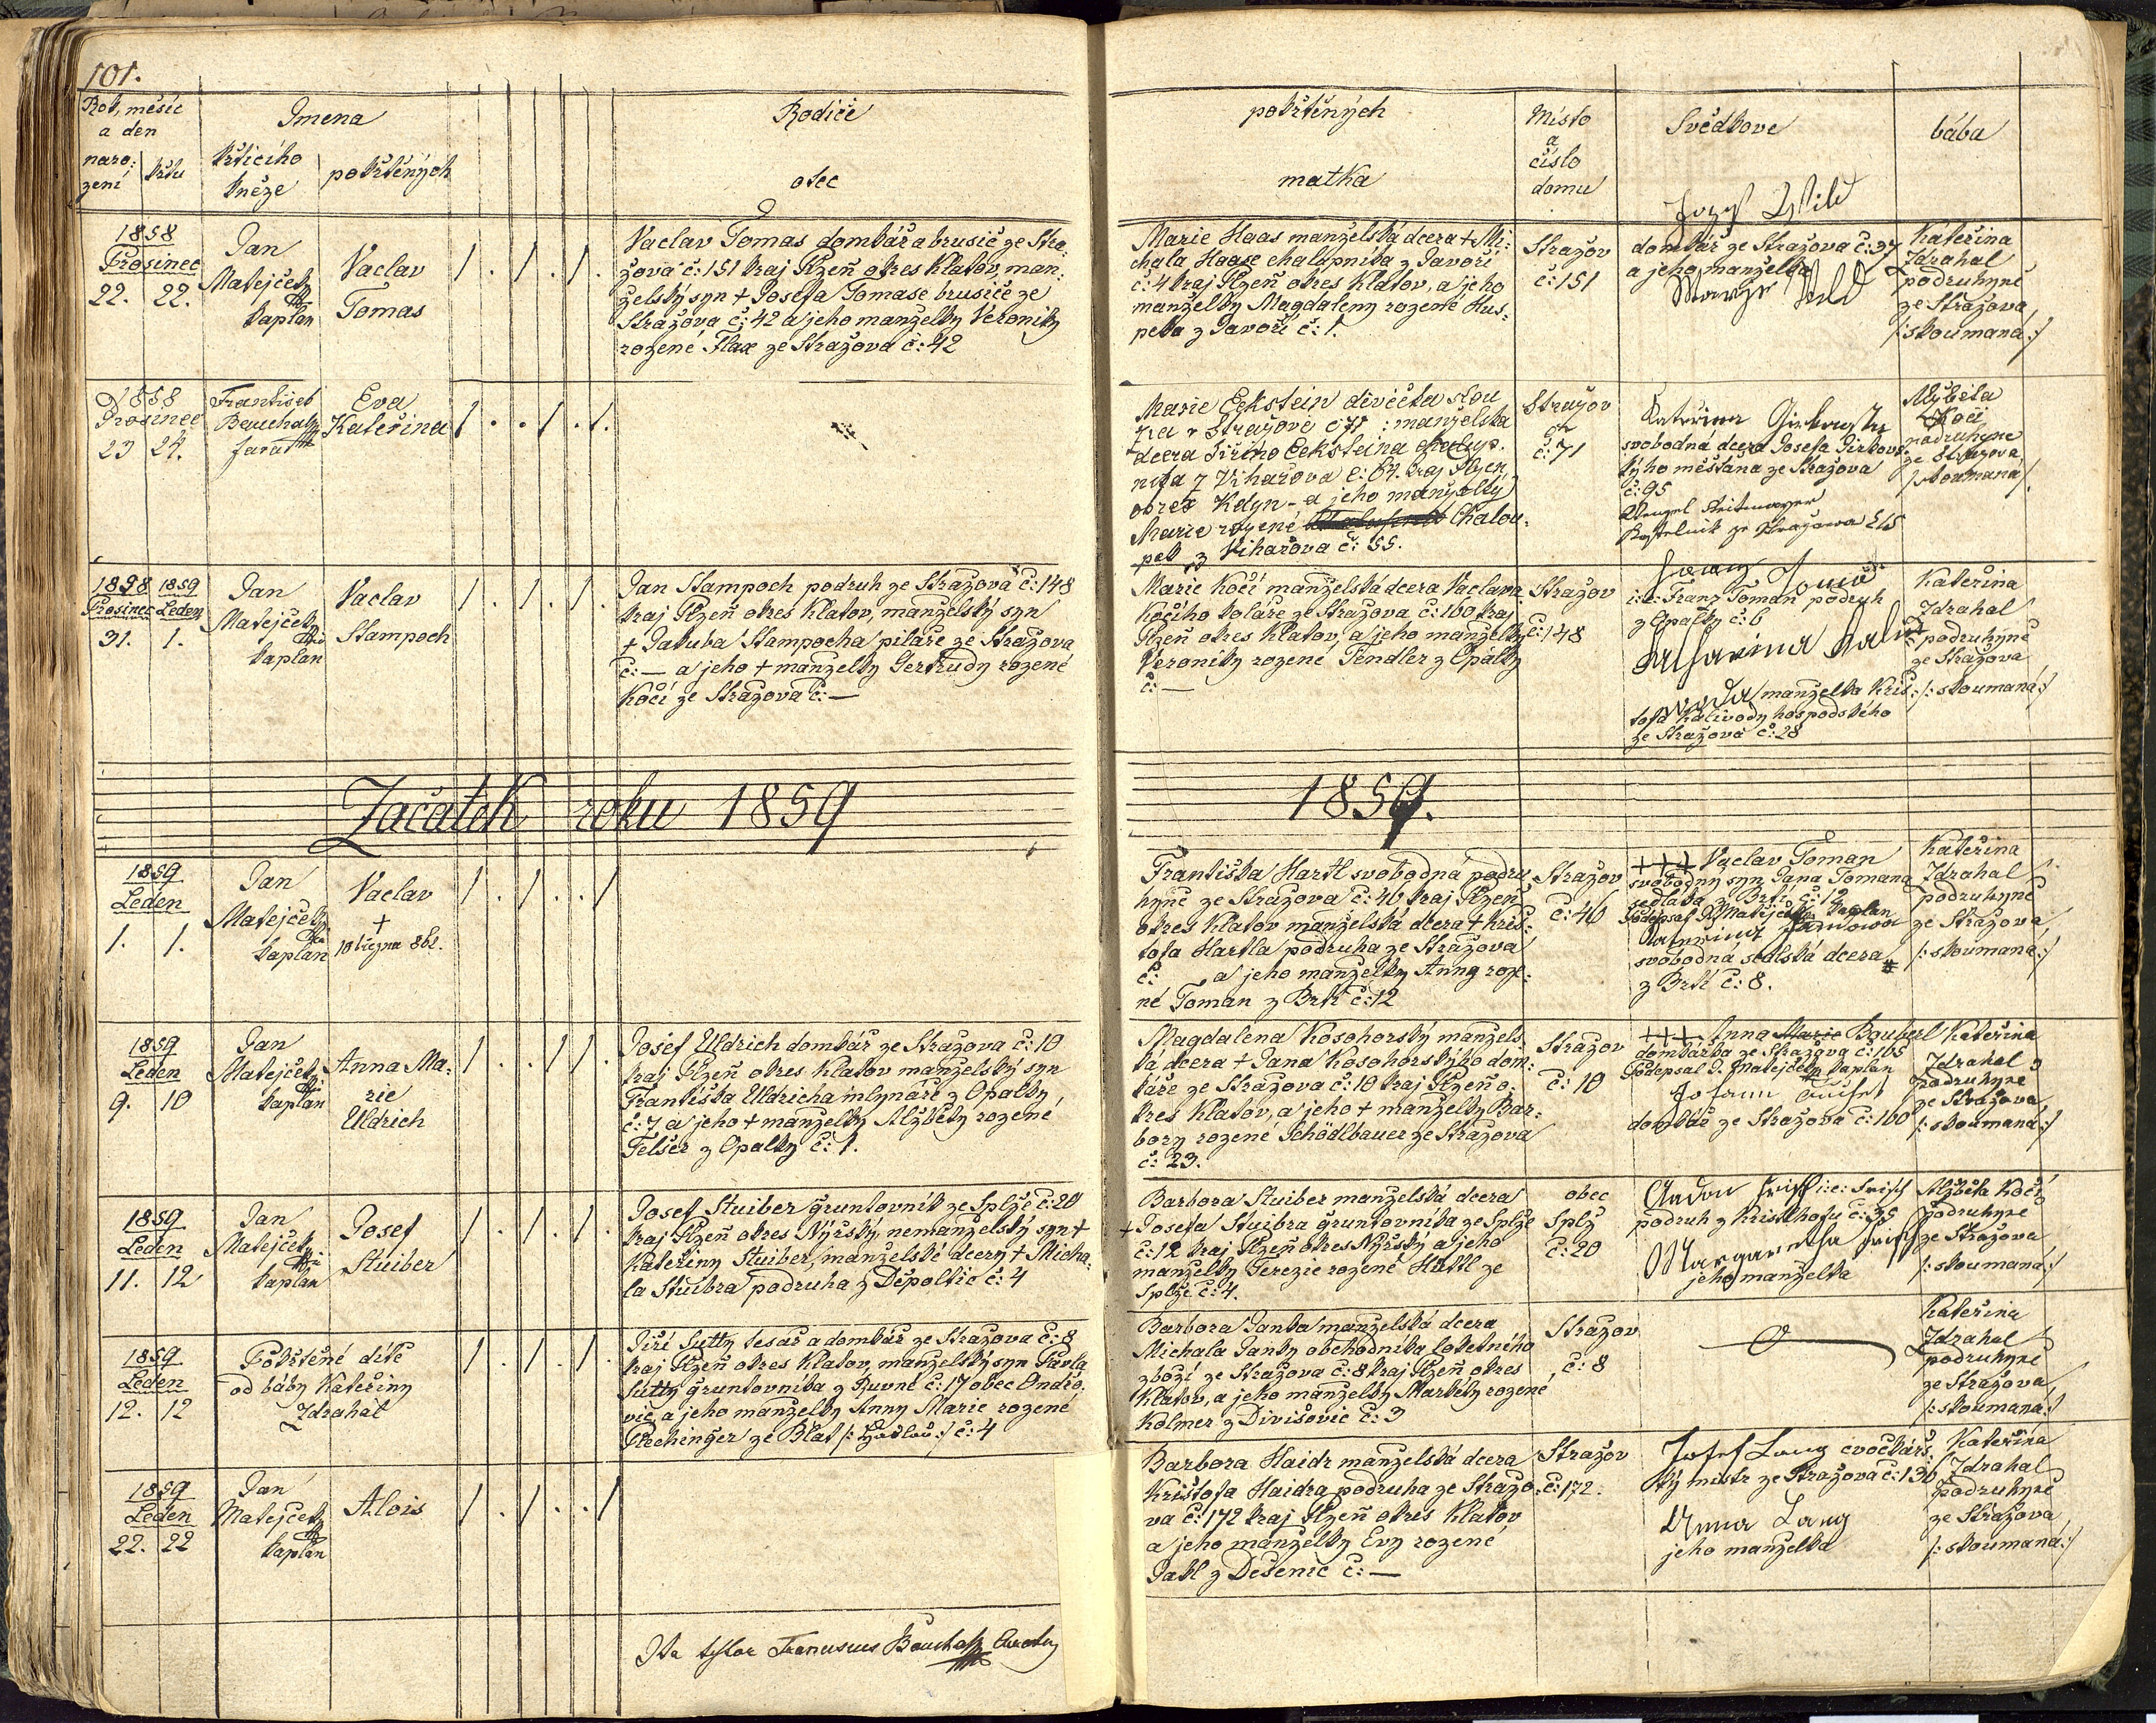 101.
Rok, měsíc
a den
naro:
zení
křtu
Jmena
křticího
kněze
pokřtěných
Rodiče
otec
pokřtěných
matka
Místo
a
číslo
domu
Svědkove
bába
1858
Prosinec
22. 22.
Jan
Matejček
kaplan
Vaclav
Tomas
Vaclav Tomas domkář a brusič ze Stra:
žova č: 151 kraj Plzeň okres Klatov, man:
želský syn + Josefa Tomase brusiče ze
Stražova č: 42 a jeho manželky Veroniky
rozené Flax ze Stražova č: 42
Marie Haas manželská dcera + Mi:
chala Haase chalupníka z Javoří
č: 4 kraj Plzeň okres Klatov, a jeho
manželky Magdaleny rozené Hus:
peka z Javoří č: 1.
Stražov
č: 151
Josef Wild
domkář ze Stražova č: 37
a jeho manželka
Marye Wild
Kateřina
Zdrahal
podruhyně
ze Stražova,
/:skoumaná:/
1858
Prosinec
23 24.
František
Bauchal
farář
Eva
Kateřina
Marie Eckstein divečka slou
zva Stražově č 71 : manželská
dcera Jiřího Ecksteina chalup:
níka z Viharova č: 64. kraj Plzen
okres Kdyn - a jeho manželky
Marie rozené Chalou:
pek z Viharova č: 55.
Stražov
č: 71
Kateřina
svobodná dcera Josefa Jirkovs:
kýho měšťana ze Stražova
č: 95
Wenzel Reitmayer
Kostelnik ze Stražowa
Alžběta
Kočí
podruhyne
ze Stražova
/skoumaná/.
1858 1859
Prosinec Leden
31. 1.
Jan
Matejček
kaplan
Vaclav
Stampoch
Jan Stampoch podruh ze Stražova č: 148
kraj Plzeň okres Klatov, manželský syn
+ Jakuba Stampocha pilaře ze Stražova
č: — a jeho + manželky Gertrudy rozené
Kočí ze Stražova č: —
Marie Kočí manželská dcera Vaclava
Kočího kolaře ze Stražova č: 160 kraj
Plzeň okres Klatov, a jeho manželky
Veroniky rozené Fendler z Opálky
č: —
Stražov
č: 148
i:e: Franz Toman podruh
z Opalky č: 6
Katharina Kali
woda manželka Kriš:
tofa Kalivody hospodského
ze Stražova č: 28
Kateřina
Zdrahal
podruhyně
ze Stražova
/:skoumaná:/
Začátek roku 1859
1859.
1859
Leden
1. 1.
Jan
Matejček
kaplan
Vaclav
+
10 března 862.
Františka Hartl svobodná podru
hyně ze Stražova č: 46 kraj Plzeň
okres Klatov manželská dcera + Kriš:
tofa Hartla podruha ze Stražova
č: a jeho manželky Anny roze:
né Toman z Brtí č: 12
Stražov
č: 46
+++ Vaclav Toman
svobodný syn Jana Tomana
sedláka z Brtí č: 12
Podepsal J. Matejček kaplan
svobodná sedlská dcera
z Brtí č: 8.
Kateřina
Zdrahal
podruhyně
ze Stražova,
/:skoumaná:/
1859
Leden
9. 10
Jan
Matejček
kaplan
Anna Ma:
rie
Uldrich
Josef Uldrich domkář ze Stražova č: 10
kraj Plzeň okres Klatov manželský syn
Františka Uldricha mlynáře z Opalky
č: 7 a jeho + manželky Alžběty rozené
Felser z Opalky č: 1.
Magdalena Kosohorský manžels
ká dcera + Jana Kosohorskýho dom:
káře ze Stražova č: 10 kraj Plzeň o:
kres Klatov, a jeho + manželky Bar:
bory rozené Schödlbauer ze Stražova
č: 23.
Stražov
č: 10
+++ Anna Marie Bauberl
domkářka ze Stražova č: 165
Podepsal J. Matejček kaplan
Johann
domkář ze Stražova č: 160
Kateřina
Zdrahal
podruhyně
ze Stražova
/:skoumaná:/
1859
Leden
11. 12
Jan
Matejček
kaplan
Josef
Stuiber
Josef Stuiber gruntovník ze Splže č: 20
kraj Plzeň okres Nýrský, nemanželský syn +
Kateřiny Stuiber, manželské dcery + Micha:
la Stuibra podruha z Děpoltic č: 4
Barbora Stuiber manželská dcera
+ Josefa Stuibra gruntovníka ze Splže
č: 12 kraj Plzeň okres Nýrský a jeho
manželky Terezie rozené Hüttl ze
Splže č: 4.
obec
Splž
č: 20
i:e: Frisch
podruh z Kristlhofu č: 35
Margaretha Frisch
jeho manželka
Alžběta Kočí
podruhyně
ze Stražova
/:skoumaná:/
1859
Leden
12. 12
Pokřtěné dítě
od báby Kateřiny
Zdrahal
Jiří Sutty tesař a domkář ze Stražova č: 8
kraj Plzeň okres Klatov, manželský syn Pavla
Sutty gruntovníka z Ruvné č: 17 obec Ondřo:
vic, a jeho manželky Anny Marie rozené
Plechinger ze Blat č: 4
Barbora Janka manželská dcera
Michala Janky obchodníka loketného
zboží ze Stražova č: 8 kraj Plzeň okres
Klatov, a jeho manželky Markéty rozené
Kolmer z Divišovic č: 3
Stražov
č: 8
Kateřina
Zdrahal
podruhyně
ze Stražova
/:skoumaná:/
1859
Leden
22. 22
Jan
Matejček
kaplan
Alois
Barbora Haidr manželská dcera
Krištofa Haidra podruha ze Stražo:
va č: 172 kraj Plzeň okres Klatov
a jeho manželky Evy rozené
Jakl z Dešenic č: —
Stražov
č: 172.
Josef Lang cvočkářs
ký mistr ze Stražova č: 136
Anna Lang
jeho manželka
Kateřina
Zdrahal
podruhyně
ze Stražova,
/:skoumaná:/
Ita testor Franciscus Bauchal